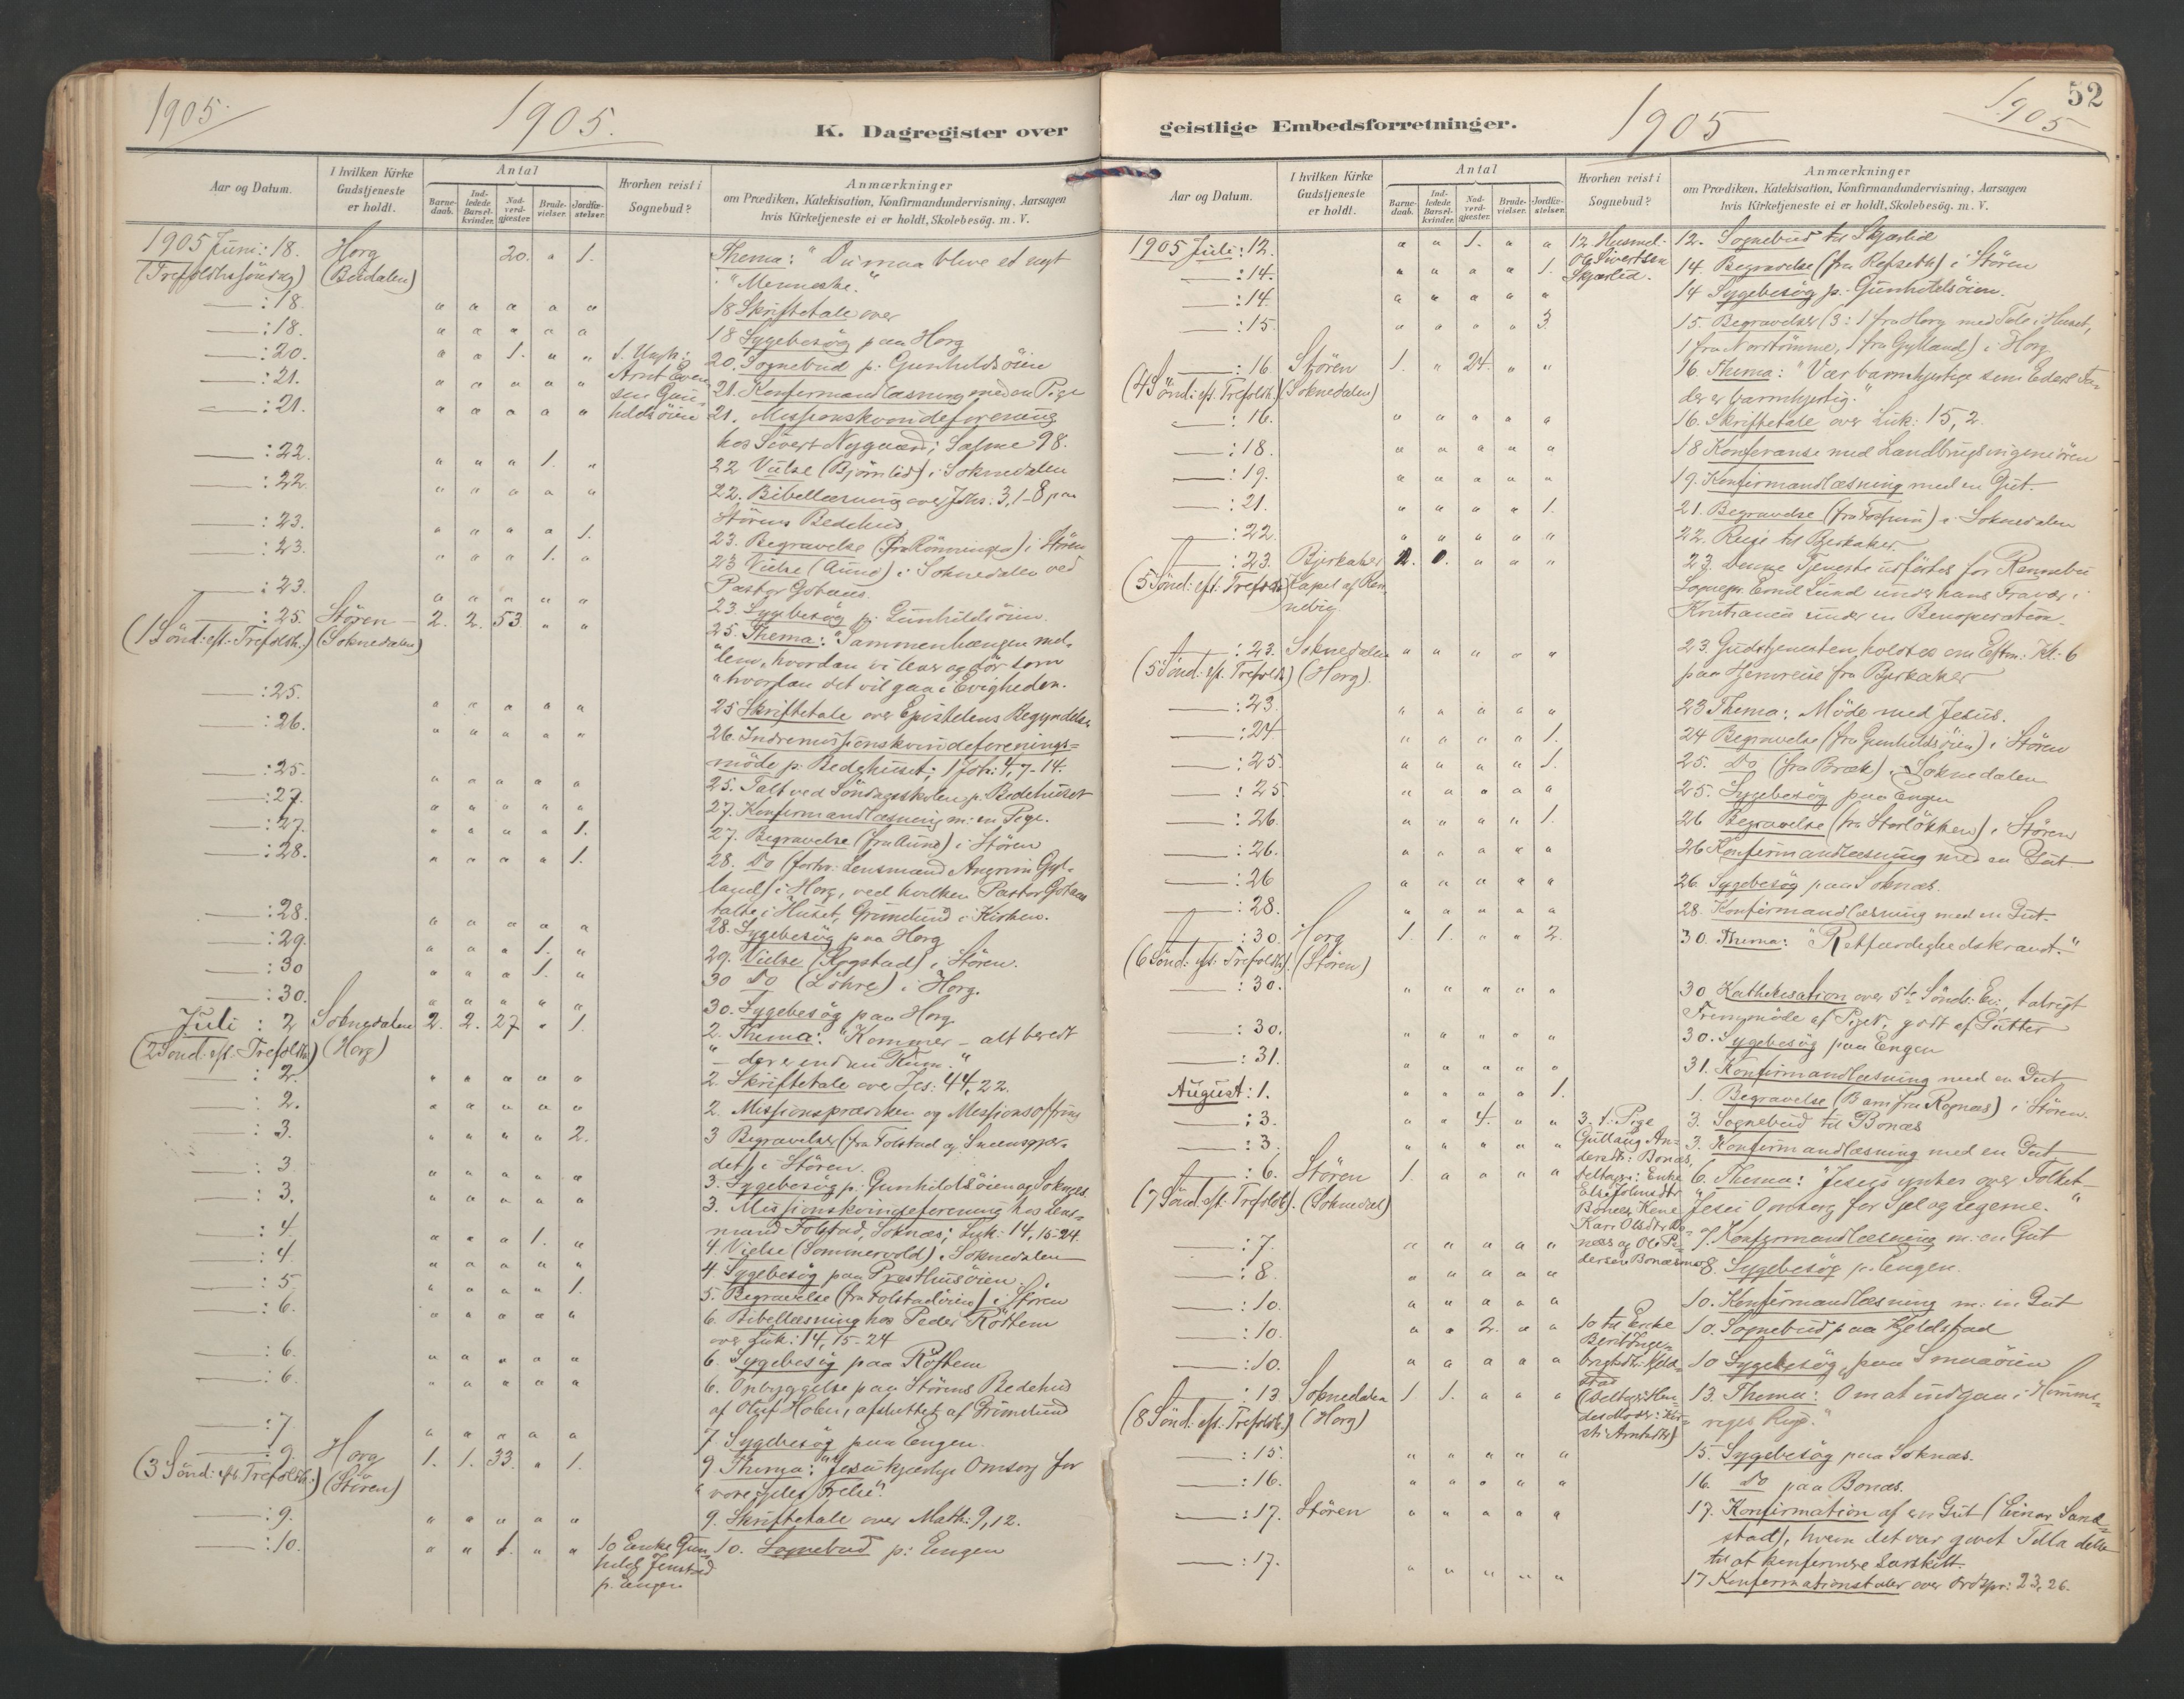 1905.
1905.
K. Dagregister over
Aar og Datum.
I hvilken Kirke Gudstjeneste er holdt.
Antal
Barnedaab.
Indledede Barselkvinder.
Nadverdgjester.
Brudevielser.
Jordfæstelser.
Hvorhen reist i Sognebud?
Anmærkninger
om Prædiken, Katekisation, Konfirmandundervisning, Aarsagen
hvis Kirketjeneste ei er holdt, Skolebesög. m. V.
1905 Juni: 18. Horg 20. " 1. Thema: "Du maa blive et nyt
(Trefoldhs söndag) (Budalen) "Menneske."
: 18. " " " " " 18 Skriftetale over
: 18. " " " " " 18 Sygebesög paa Horg
: 20. " " 1. " " 20. Sognebud p: Gunhildsöien
: 21. " " " " " 21. Konfirmandlæsning med en Pige
: 21. " " " " " 21. Missionskvindeforening
hos Sivert Nygaard; Salme 98.
: 22. " " " 1. " 22 Vielse (Bjørnlid) i Soknedalen
: 22. " " " " " 22. Bibellæsning over Joh: 3,1-8 paa
Störens Bedehus
: 23. " " " " 1. 23. Begravelse (fra Rönningen) i Stören
: 23. " " " 1. " 23 Vielse (Aune) i Soknedalen ved
Pastor Gotaas.
: 23. " " " " " 23. Sygebesög p: Gunhildsöien.
: 25. Stören 2. 2. 53 " " 25. Thema: "Sammenhængen mel-
(1 Sönd: eft. Trefoldh:) (Soknedalen) "lem, hvordan vi lever og dör som
"hvordan det vil gaa i Evigheden.
: 25. " " " " " 25 Skriftetale over Epistelens Begyndelse
: 26. " " " " " 26. Indremissionskvindeforenings=
möde p: Bedehuset; 1 Joh: 4,7-14.
: 25. " " " " " 25. Talt ved Söndagsskolen p: Bedehuset
: 27. " " " " " 27. Konfirmandlæsning m: en Pige.
: 27. " " " " 1. 27. Begravelse (fra Aune) i Stören
: 28. " " " " 1. 28. Do (forhv: Lensmand Angrim Gyl-
land) i Horg, ved hvilken Pastor Gotaas
talte i Huset, Grimelund i Kirken.
: 28. " " " " " 28. Sygebesög paa Horg
: 29. " " " 1. " 29. Vielse (Rogstad) i Stören.
: 30 " " " 1. " 30 Do (Löhre) i Horg.
: 30. " " " " " 30. Sygebesög paa Horg
Juli : 2 Soknedalen 2. 2. 27 " 1. 2. Thema: "Kommer – alt beredt
(2 Sönd: eft. Trefoldh:) (Horg) "– der er endnu Rum."
: 2. " " " " " 2. Skriftetale over Jes: 44,22.
: 2. " " " " " 2. Missionsprædiken og Missionsoffring
: 3. " " " " 2. 3 Begravelser (fra Folstad og
det) i Stören.
: 3 " " " " " 3. Sygebesög p: Gunhildsöien og Soknes.
: 3. " " " " " 3. Missionskvindeforening hos Lens-
mand Folstad, Soknæs; Luk: 14,15-24.
: 4. " " " 1. " 4. Vielse (Sommervold) i Soknedalen
: 4. " " " " " 4 Sygebesög paa Presthusöien.
: 5. " " " " 1. 5. Begravelse (fra Folstadöien) i Stören
: 6. " " " " " 6. Bibellæsning hos Peder Röttem
over Luk: 14,15-24
: 6. " " " " " 6. Sygebesög paa Röttem
: 6. " " " " " 6. Opbyggelse paa Störens Bedehus
af Oluf Holen, afsluttet af Grimelund
: 7. " " " " " 7. Sygebesög paa Engen.
: 9. Horg 1. 1. 33. " 1. 9 Thema: "Jesu kjærlige Omsorg for
(3 Sönd: eft. Trefoldh:) (Stören) "vore Sjeles Frelse".
: 9. " " " " " 9. Skriftetale over Math: 9,12.
: 10. " " 1. " " 10. Sognebud p: Engen
1. Ungk:
Arnt Even
sen Gun-
hildsöien
10 Enke Gun
hild Jenstad
p. Engen
52
1905
1905
geistlige Embedsforretninger.
Aar og Datum.
I hvilken Kirke Gudstjeneste er holdt.
Antal
Barnedaab.
Indledede Barselkvinder.
Nadverdgjester.
Brudevielser.
Jordfæstelser.
Hvorhen reist i Sognebud?
Anmærkninger
om Prædiken, Katekisation, Konfirmandundervisning, Aarsagen
hvis Kirketjeneste ei er holdt, Skolebesög. m. V.
1905 Juli: 12. " " 1. " " 12. Sognebud til Skjærlid
: 14. " " " " 1. 14. Begravelse (fra Refseth) i Stören
: 14. " " " " " 14 Sygebesög p. Gunhildsöien.
: 15. " " " " 3. 15. Begravelser (3: 1 fra Horg med Tale i Huset,
1 fra Norströmme, 1 fra Gylland) i Horg
: 16 Stören 1. " 24. " " 16. Thema: "Vær barmhjertige som Eders Fa-
(4 Sönd: eft. Trefoldh.) (Soknedalen) der er barmhjertig."
: 16. " " " " " 16. Skriftetale over Luk: 15,2.
: 18. " " " " " 18 Konferanse med Landbrugsingeniören
: 19. " " " " " 19. Konfirmandlæsning med en Gut.
: 21. " " " " 1. 21. Begravelse (fra Fossum) i Soknedalen
: 22. " " " " " 22. Reise til Bjerkaker.
: 23. Bjerkaker 2. 0. " " " 23. Denne Tjeneste udförtes for Rennebu
(5 Sönd: eft. Trefoldh) Kapel af Ren Sognepr. Emil Lund under hans Fravær i
nebu Kristiania under en Benoperation.
: 23. Soknedalen " " " " " 23. Gudstjenesten holdtes om Efterm: Kl: 6
(5 Sönd: eft. Trefoldh) (Horg). paa Hjemreise fra Bjerkaker
: 23. " " " " " 23 Thema: Möde med Jesus.
: 24 " " " " 1. 24 Begravelse (fra Gunhildsöien) i Stören
: 25 " " " " 1. 25. Do (fra Bræk) i Soknedalen
: 25 " " " " " 25. Sygebesög paa Engen
: 26. " " " " 1. 26 Begravelse (fra Storlökken) i Stören
: 26. " " " " " 26 Konfirmandlæsning med en Gut
: 26 " " " " " 26. Sygebesög paa Soknæs.
: 28. " " " " " 28. Konfirmandlæsning med en Gut.
: 30. Horg 1. 1. " " 2. 30. Thema: "Retfærdighedskravet."
(6 Sönd: eft: Trefoldh). (Stören)
: 30. " " " " " 30 Kathekisation over 5te Sönds: Ev:, talrigt
Fremmöde af Piger, godt af Gutter
: 30. " " " " " 30. Sygebesög paa Engen
: 31. " " " " " 31. Konfirmandlæsning med en Gut
August: 1. " " " " 1. 1. Begravelse (Barn fra Rognæs) i Stören.
: 3 " " 4. " " 3. Sognebud til Bonæs
: 3. " " " " " 3. Konfirmandlæsning med en Gut
: 6. Stören 1. " " " " 6. Thema: "Jesus ynkes over Folket–
(7 Sönd: eft. Trefoldh). (Soknedal) Jesu Omsorg for Sjel og Legeme."
: 7. " " " " " 7. Konfirmandlæsning m: en Gut
: 8. " " " " " 8. Sygebesög p. Engen.
: 10. " " " " " 10. Konfirmandlæsning m: en Gut
: 10. " " 2. " " 10. Sognebud paa Kjeldstad
: 10. " " " " " 10 Sygebesög paa Smaaöien
: 13. Soknedalen 1 1. " " " 13. Thema: Om at indgaa i Himme-
(8 Sönd: eft. Trefoldh.) (Horg) riges Rige."
: 15. " " " " " 15. Sygebesög paa Soknæs.
: 16. " " " " " 16. Do paa Bonæs.
: 17. Stören " " " " " 17. Konfirmation af en Gut (Einar Sand-
stad), hvem det var givet Tilladelse
til at konfirmere særskilt.
: 17. " " " " " 17 Konfirmationstaler over Ordspr: 23,26.
12 Husmd:
Ole Sivertsen
Skjærlid.
3. 1. Pige
Gullaug An-
dersdtr: Bonæs,
deltagr: Enke
Bonæs, Kone
Kari Olsdtr Bo-
næs og Ole Pe-
dersen Bonæsmo
10 til Enke
Berit Inge-
brigtsdtr: Kjeld-
stad